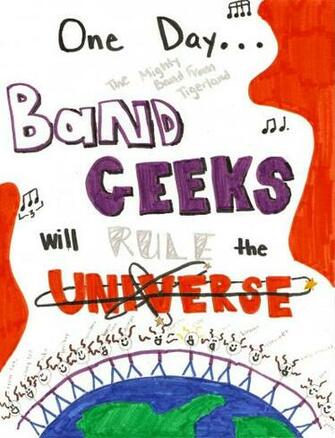 One Day...
The Mighty
Band From
Tigerland
BaND
GEEKS
will RULE the
UNIVERSE
3